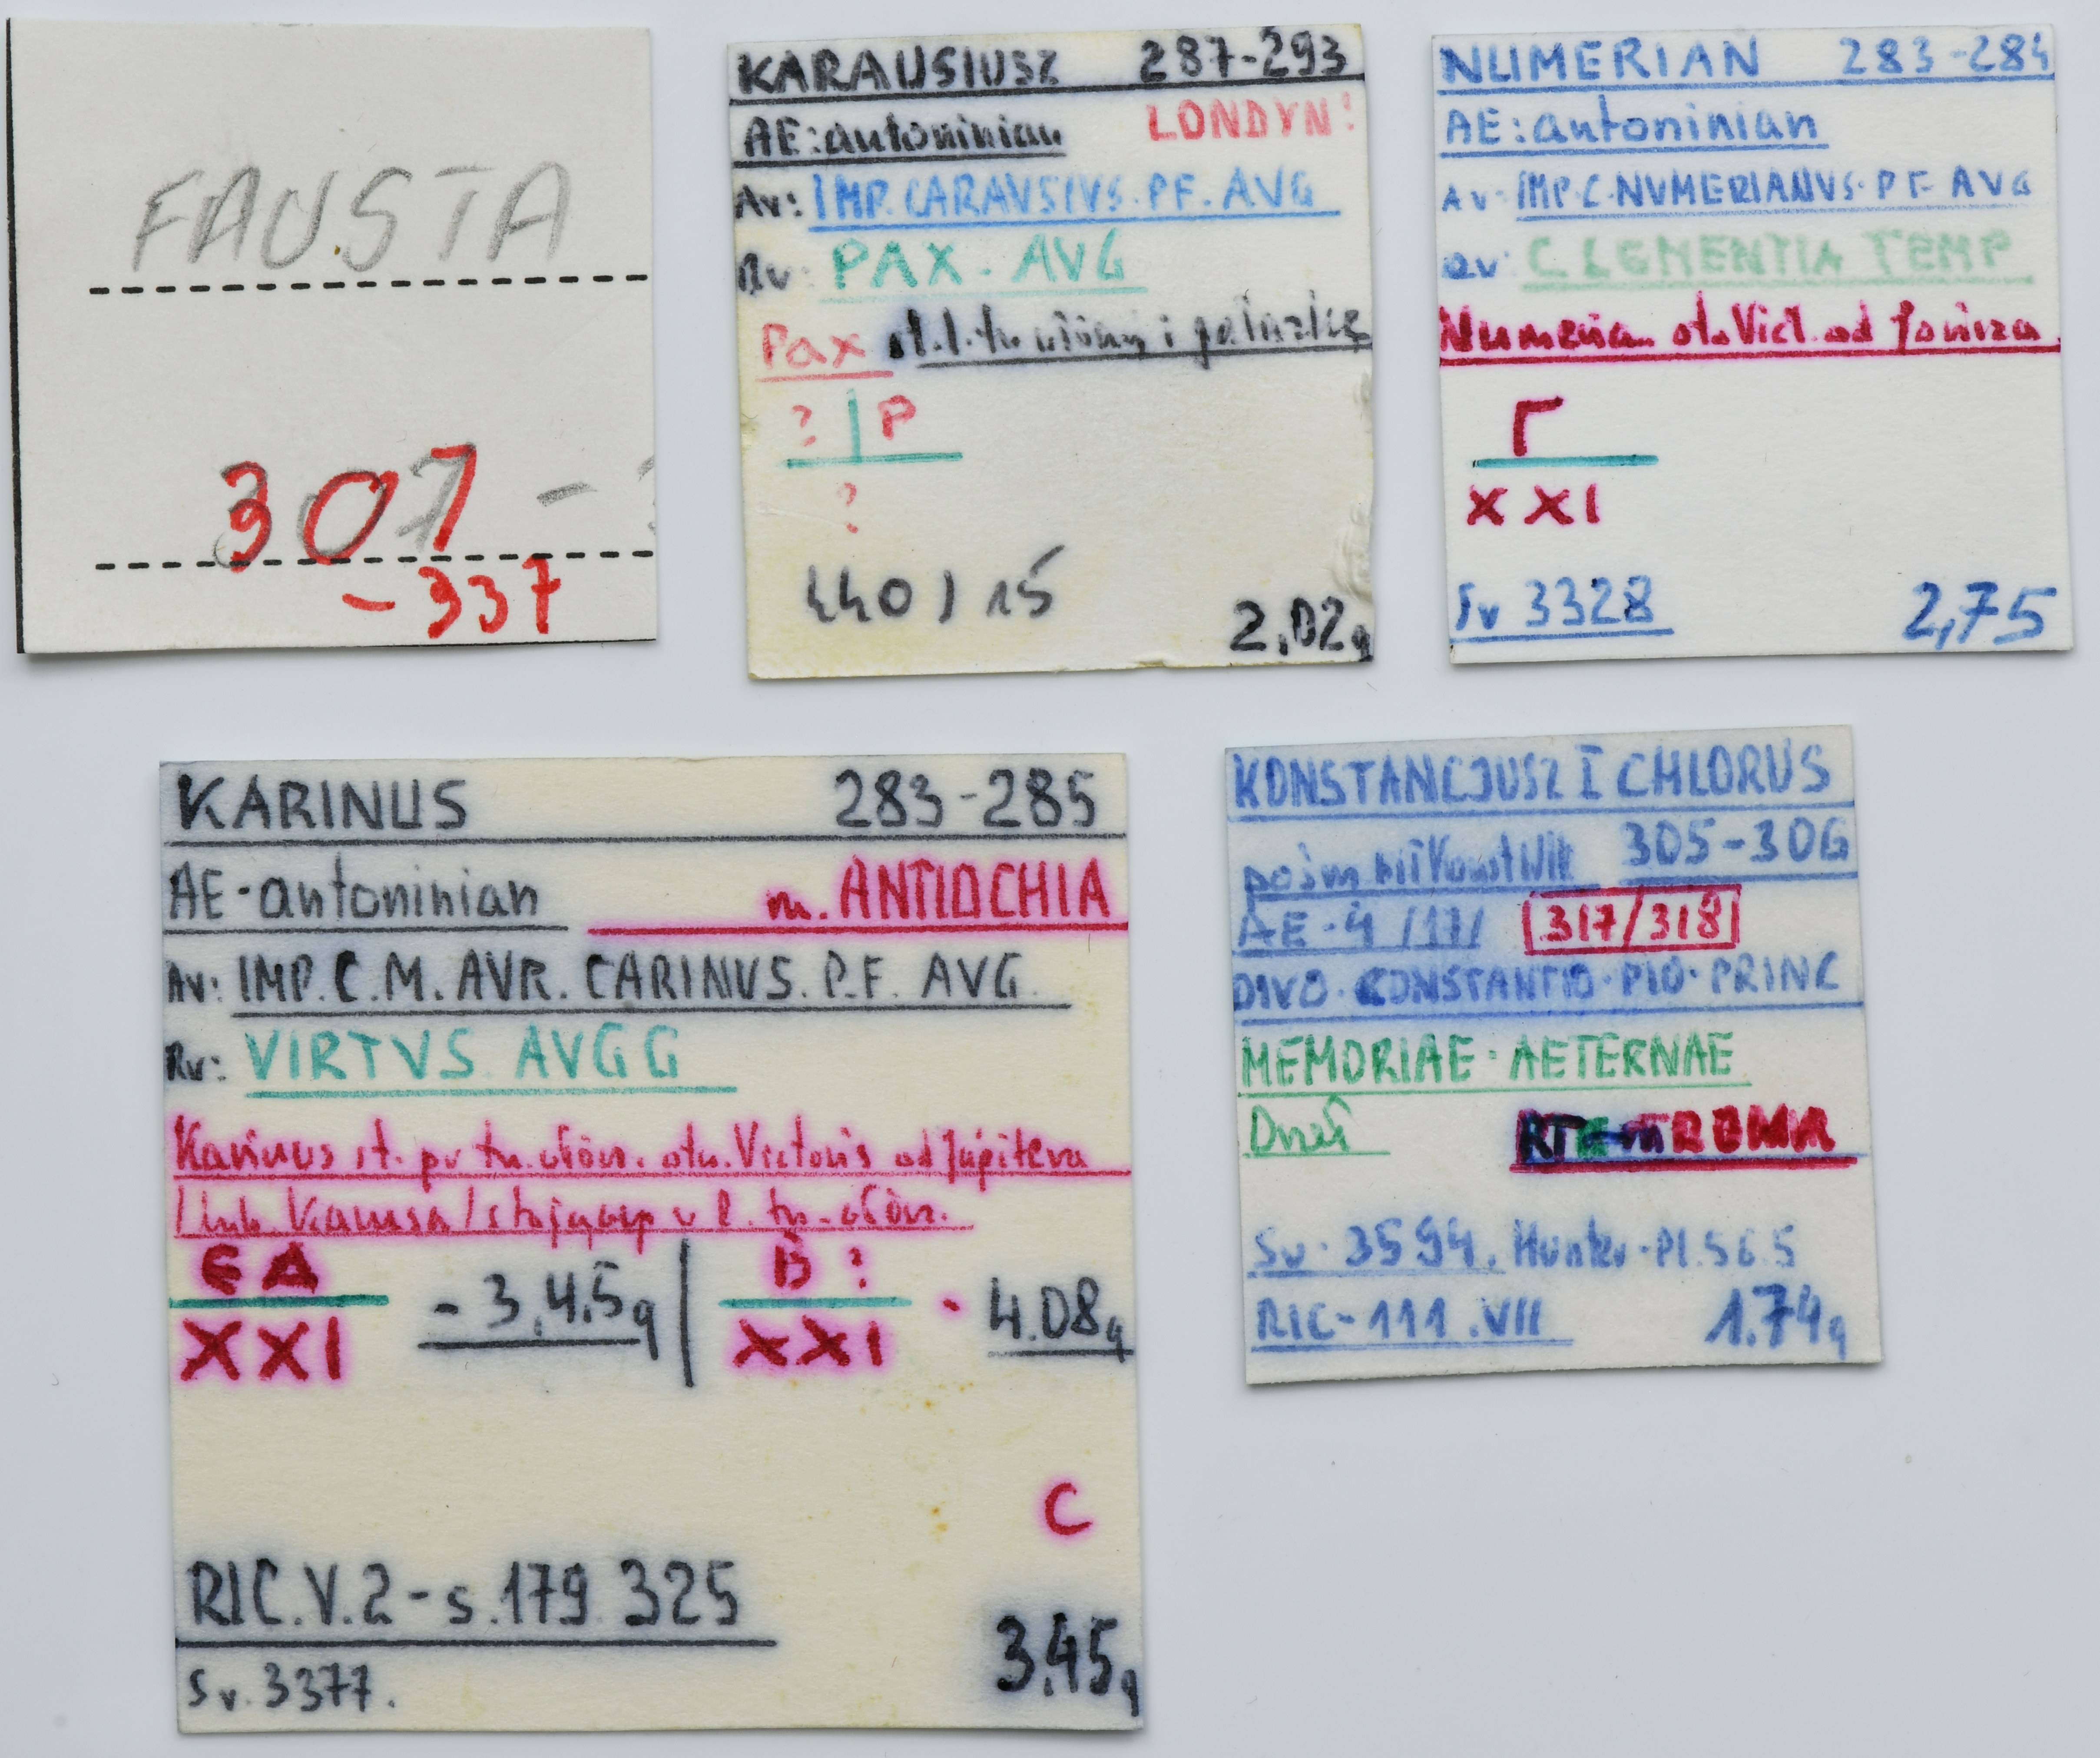 FAUSTA
307 -
- 337
KARAUSIUSZ 287-293
AE: antoninian LONDYN!
Av: IMP. CARAVSIVS. PF. AVG
Rv: PAX. AVG
Pax st. l. tu i gałązkę
? | P
?
2,02g
NUMERIAN 283-284
AE: antoninian
Av: IMP. C. NVMERIANVS. P F AVG
Rv: CLEMENTIA TEMP
Numerian otr. Vict. od
Γ
XXI
Sv 3328 2,75
KARINUS 283-285
AE-antoninian m. ANTIOCHIA
Av: IMP. C. M. AVR. CARINVS. P.F. AVG.
Rv: VIRTVS AVGG
Karinus st. pr tu. otu. Victorię od Jupitera
/lub. stojącego v l. tu.
ЄΔ - 3,45g | B ? · 4.08g
XXI XXI
C
RIC. V. 2 - s. 179 325
3,45g
Sv. 3377.
KONSTANCJUSZ I CHLORUS
pośm 305-306
AE-4 /17/ 317/318
DIVO. CONSTANTIO. PIO. PRINC
MEMORIAE. AETERNAE
ROMA
Sv. 3594. Hunter-Pl. 56.5
RIC-111. VII 1.74g